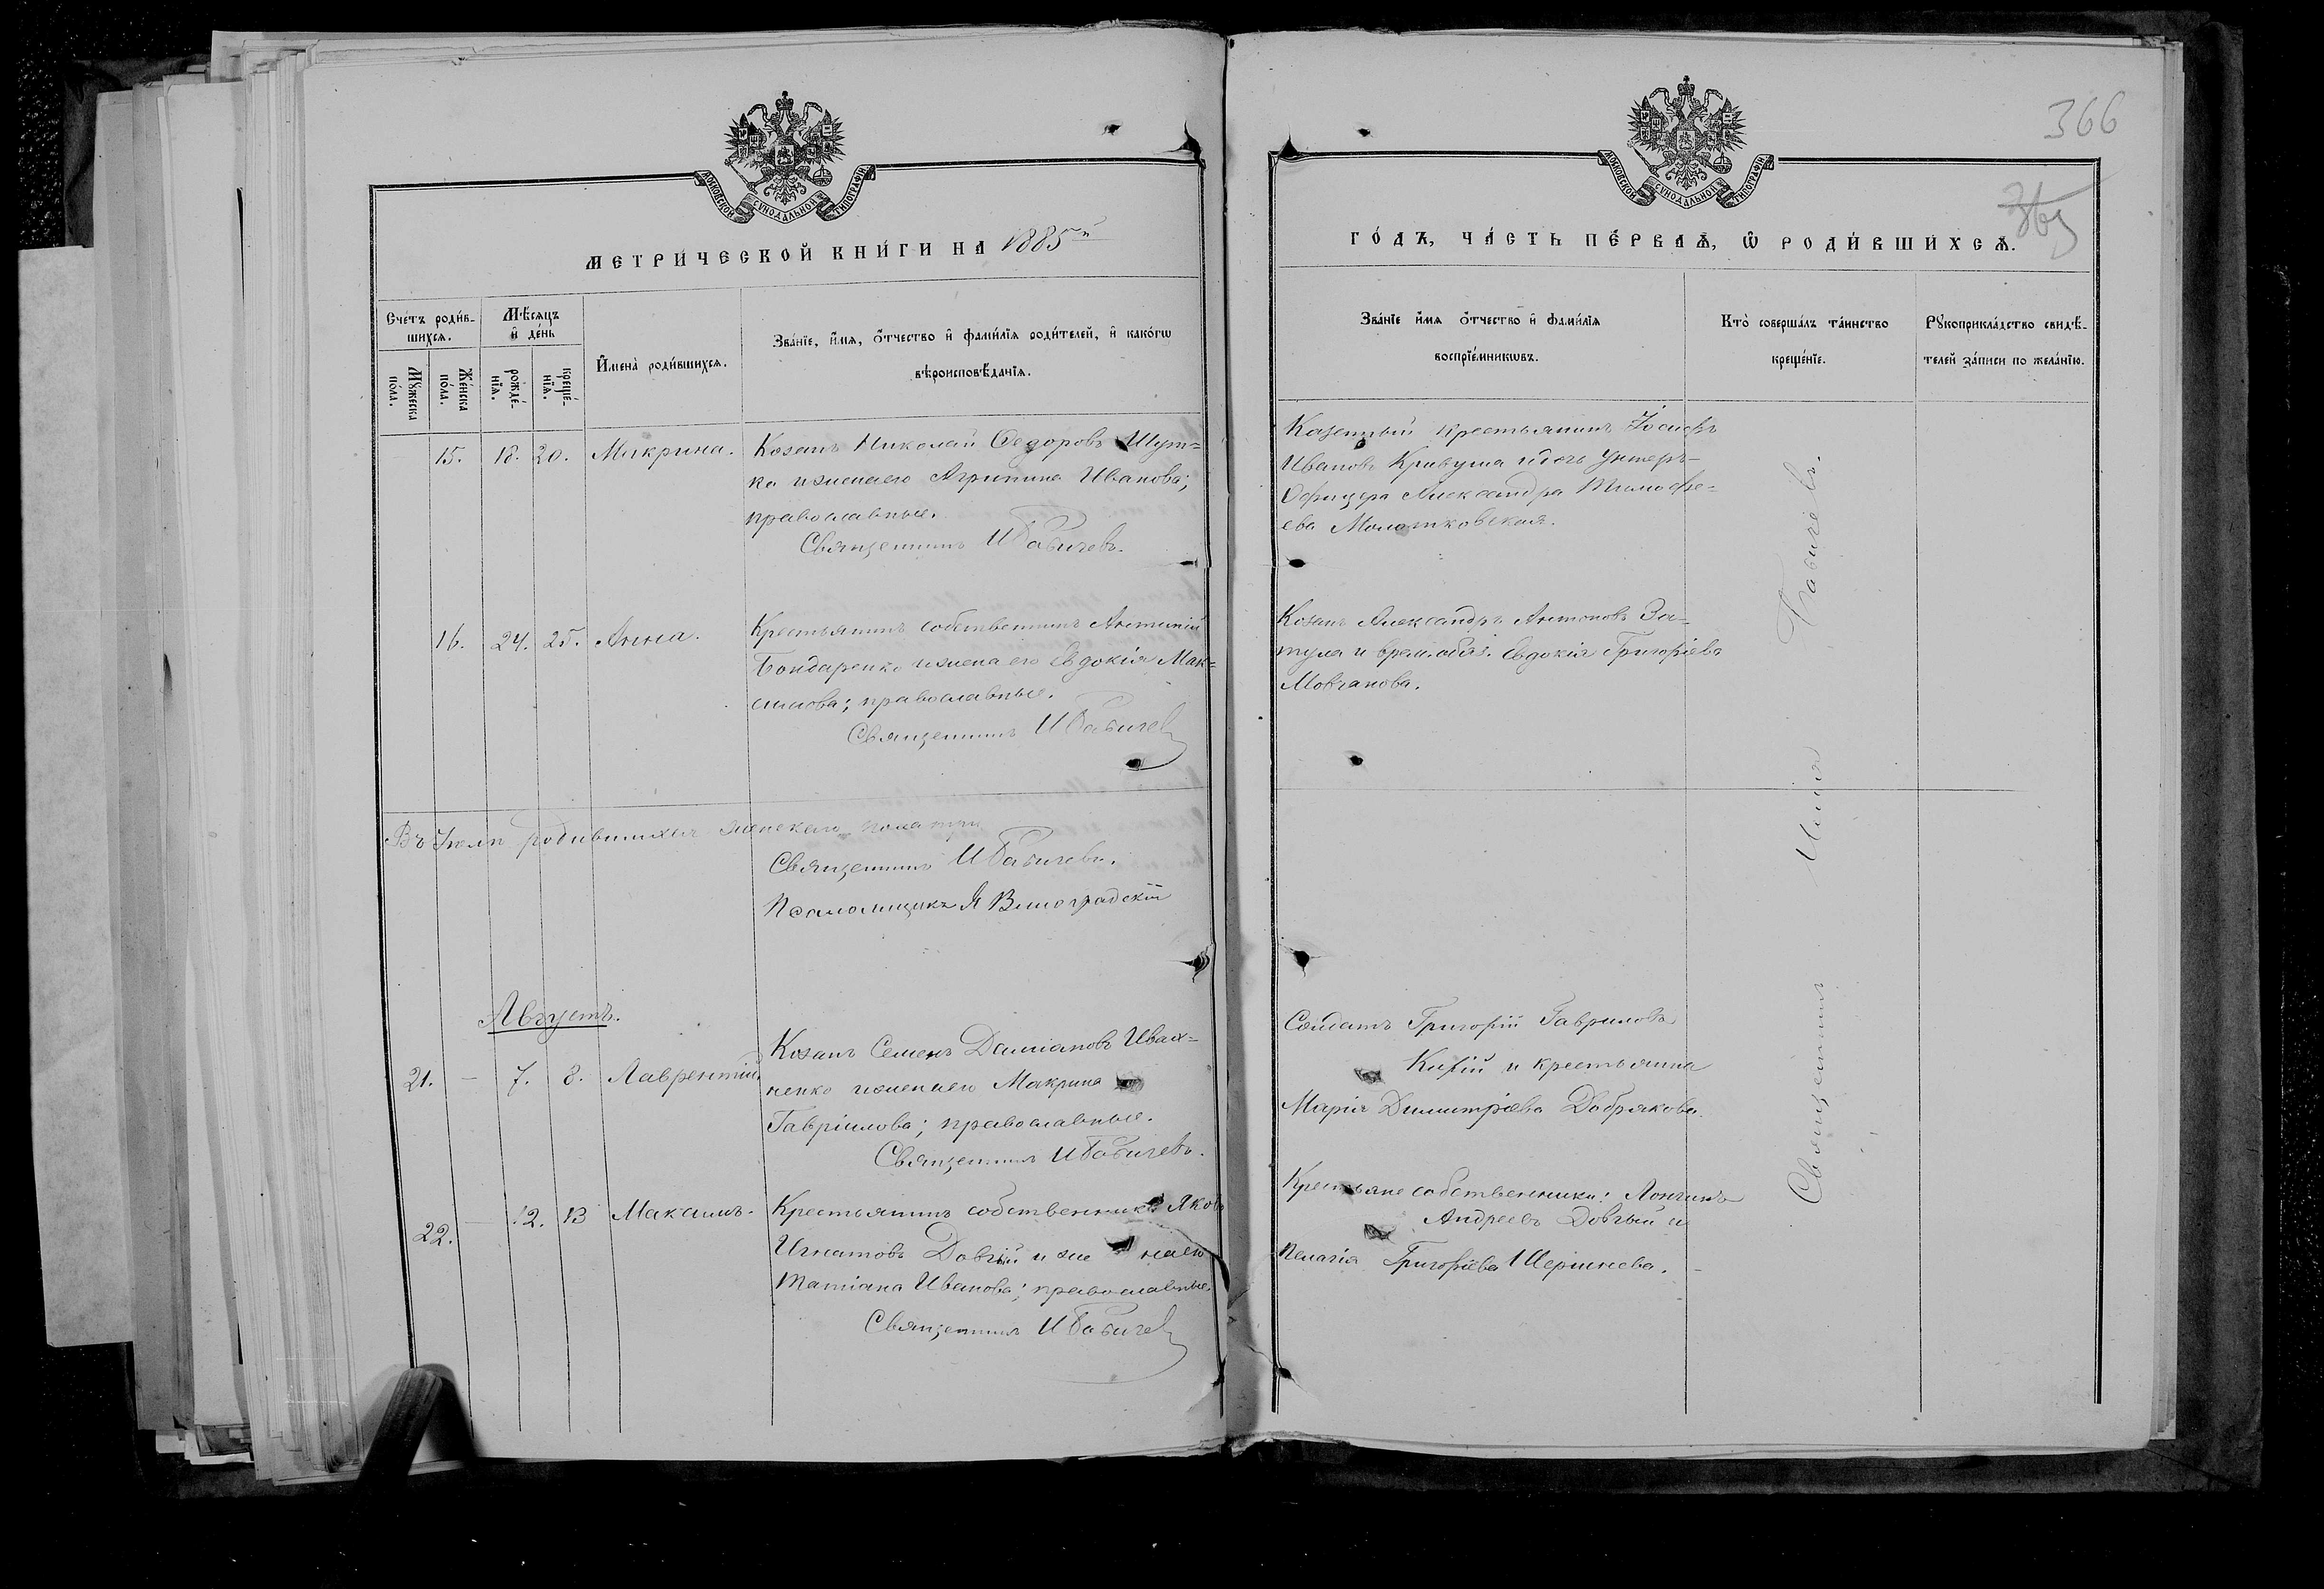 366
365
МОСКОВСКОЙ СѴНОДАЛЬНОЙ ТИПОГРАФІИ
МЕТРИ́ЧЕСКОЙ КНИ́ГИ НА 1885й
Сче́тъ роди́в-
шихся.
Мѣ́сяцъ
и҆ де́нь
Мꙋ́жеска
по́ла.
Же́нска
по́ла.
рожде́-
нїѧ.
креще́-
нїѧ.
И҆мена̀ роди́вшихсѧ.
Зва́нїе, и҆́мѧ, ѻ҆́тчество и҆ фами́лїѧ роди́телей, и҆ како́гѡ
вѣроисповѣ́данїѧ.
15. 18. 20. Макрина. Козакъ Николай Ѳедоровъ Шут=
ка и жена его Агрипина Иванова;
православные.
Священникъ И Бабичевъ.
16. 24. 25. Анна. Крестьянинъ собственникъ
Бондаренко и жена его Евдокія Мак=
симова; православные.
Священникъ И Бабичев
Въ Іюлѣ родившихся женскаго пола три
Священникъ И Бабичевъ.
Псаломщикъ Я Виноградскій
Августъ.
21. — 7. 8. Лаврентій Козакъ Семенъ Даміановъ Ивах=
ненко и жена его Макрина
Гавріилова; православные.
Священникъ И Бабичевъ.
22. — 12. 13 Максимъ. Крестьянинъ собственникъ Яковъ
Игнатовъ Довгій и жена его
Татіана Иванова; православные.
Священникъ И Бабичев
МОСКОВСКОЙ СѴНОДАЛЬНОЙ ТИПОГРАФІИ
ГО́ДЪ, ЧА́СТЬ ПЕ́РВАѦ, Ѡ҆ РОДИ́ВШИХСѦ.
Зва́нїе и҆́мѧ ѻ҆́тчество и҆ фами́лїѧ
воспрїе́мникѡвъ.
Кто̀ соверша́лъ та́инство
креще́нїе.
Рꙋкоприкла́дство свидѣ́-
телей за́писи по жела́нїю.
Казенный крестьянинъ Іосифъ
Ивановъ Кривуша и дочь Унтеръ-
Офицера Александра Тимофе=
ева Молотковская.
Козакъ Александръ Антоновъ За-
тула и врем. обяз. Евдокія Григоріева
Мовчанова.
Солдатъ Григорій Гавриловъ
Кирій и крестьянка
Марія Димитріева Добрякова.
Крестьяне собственники: Логинъ
Андреевъ Довгый и
Пелагія Григоріева Шершнева.
Священникъ Илія Бабичевъ.